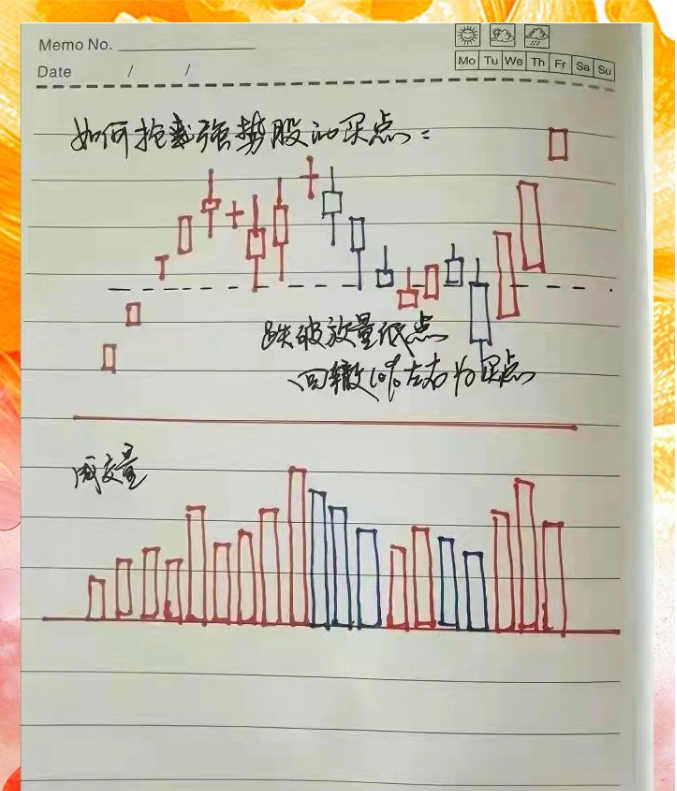 Memo No.
Mo Tu We Th Fr Sa Su
Date / /
如何拦截强势股的买点:
跌破放量低点
回辙10%左右为买点
成交量